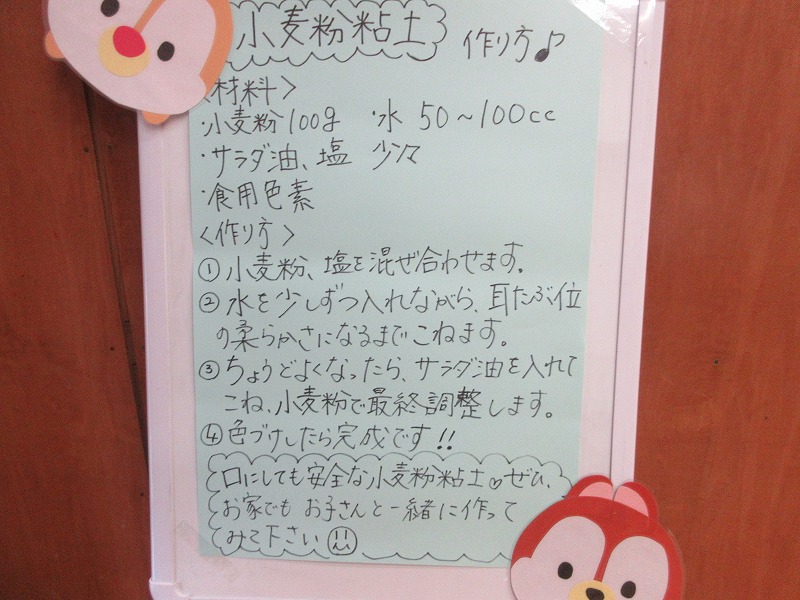 小麦粉粘土 作り方♪
<材料>
・小麦粉100g ・水 50〜100cc
・サラダ油、塩 少々
・食用色素
<作り方>
①小麦粉、塩を混ぜ合わせます。
②水を少しずつ入れながら、耳たぶ位
の柔らかさになるまでこねます。
③ちょうどよくなったら、サラダ油を入れて
こね、小麦粉で最終調整します。
④色づけしたら完成です!!
口にしても安全な小麦粉粘土♡ぜひ、
お家でもお子さんと一緒に作って
みて下さい